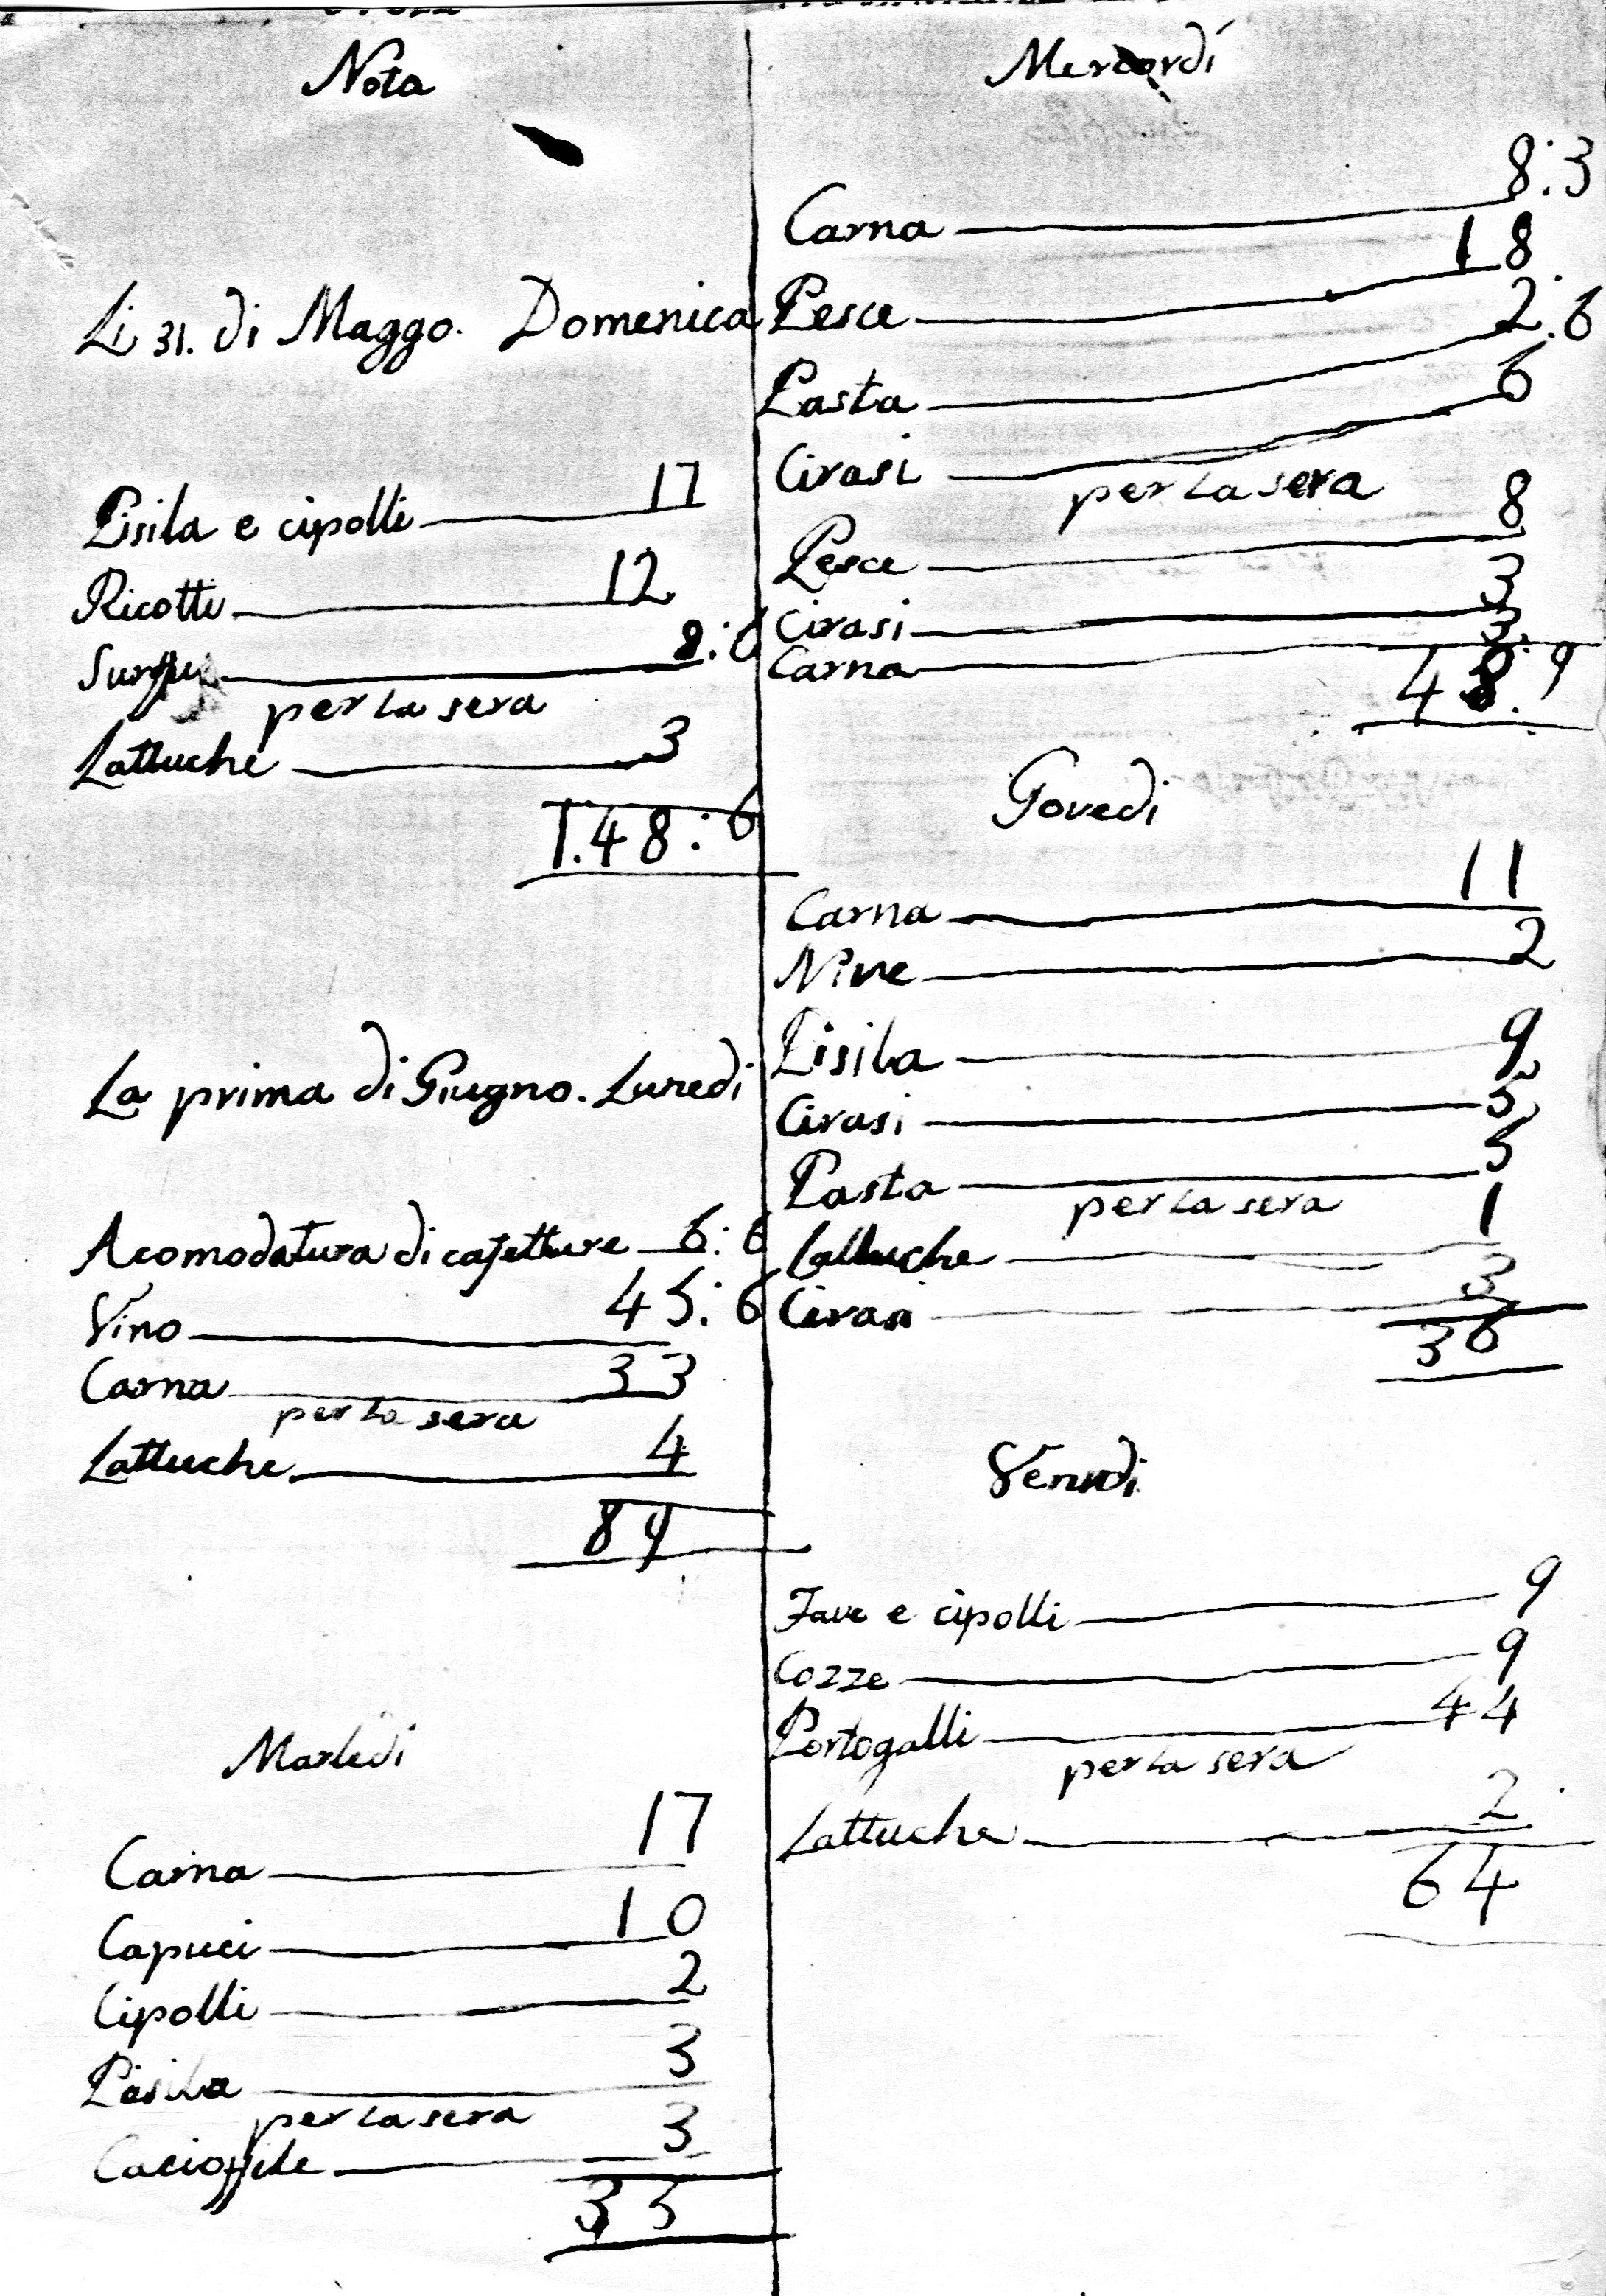 Nota
Li 31. di Maggo. Domenica
Pisila e cipolli 17
Ricotti 12
8:6
per la sera
Lattuche 3
1.48:6
La prima di Giugno. Lunedi
Acomodatura di cafetture 6:6
Vino 45:6
Carna 33
per la sera
Lattuche 4
89
Martedi
Carna 17
Capuci 10
Cipolli 2
Pisila 3
per la sera
Cacioffile 3
35
Mercordi
Carna 8:3
Pesce 18
Pasta 2:6
Cirasi 6
per la sera
Pesce 8
Cirasi 3
Carna 3
48.9
Govedi
Carna 11
Nive 2
Pisila 9
Cirasi 5
Pasta 5
per la sera
Lattuche 1
Cirasi 3
36
Venedi
Fave e cipolli 9
Cozze 9
Portogalli 44
per la sera
Lattuche 2
64